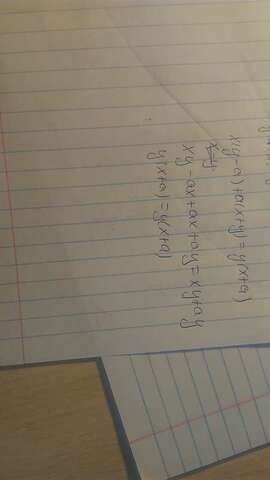 x(y-a)+a(x+y)=y(x+a)
xy-ax+ax+ay=xy+ay
y(x+a)=y(x+a)